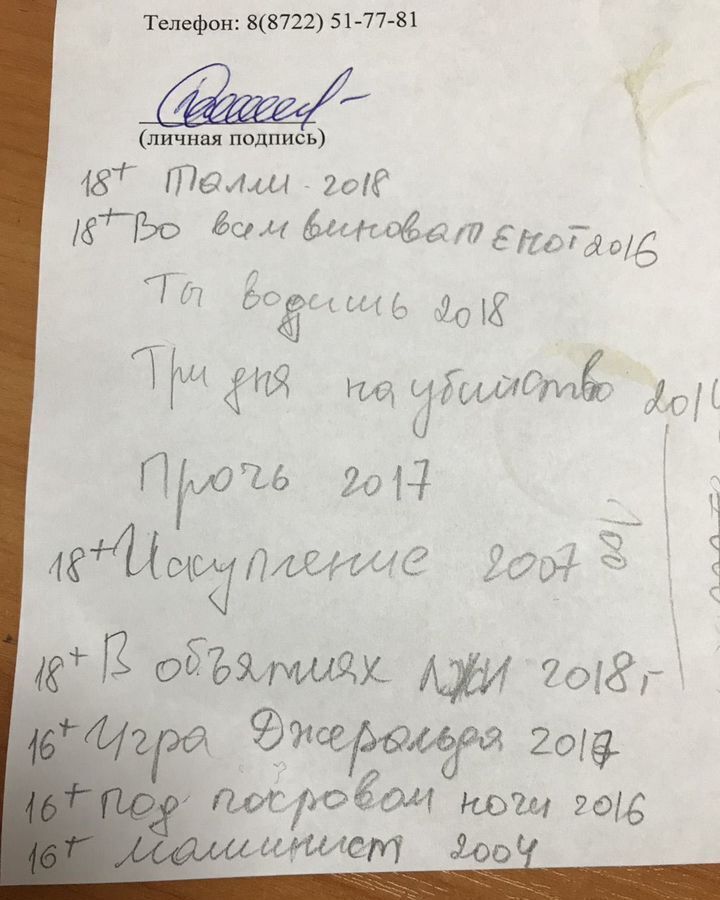 Телефон: 8(8722) 51-77-81
(личная подпись)
18+ Талли 2018
18+ Во всем виноват енот 2016
Ты водишь 2018
Три дня на убийство
Прочь 2017
18+ Искупление 2007
18+ В объятиях лжи 2018г
16+ Игра Джеральда 2017
16+ Под покровом ночи 2016
16+ машинист 2004